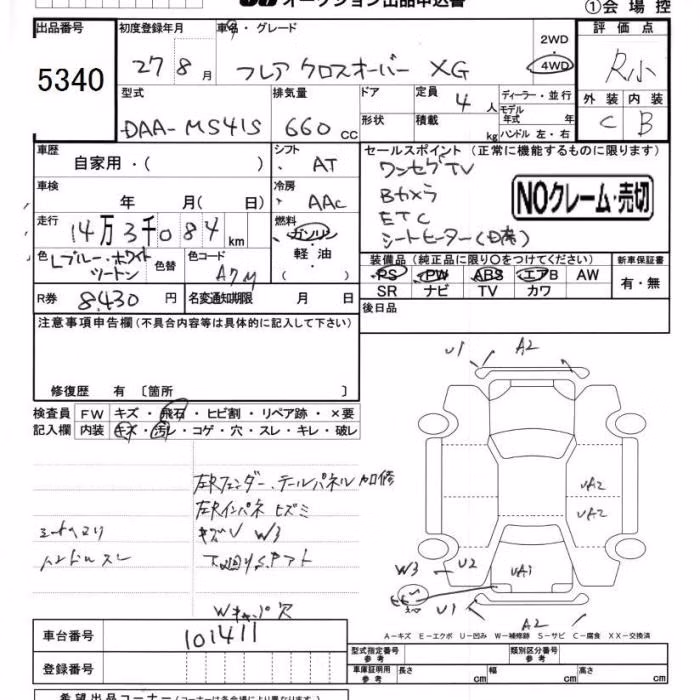 オークション出品申込書
①会場控
出品番号
5340
初度登録年月
27 8月
車名・グレード
フレア クロスオーバー XG
2WD
4WD
評価点
R小
外装 内装
C B
型式
DAA-MS41S
排気量
660cc
ドア
形状
定員
4人
積載
kg
ディーラー・並行
モデル
年式 年
ハンドル 左・右
車歴
自家用・( )
シフト
AT
車検
年 月( 日)
冷房
AAC
走行
14万3千084km
燃料
ガソリン
軽油
( )
色
Lブルー・ホワイト
ツートン
色替
色コード
A7M
R券
8,430円
名変通知期限 月 日
セールスポイント(正常に機能するものに限ります)
ワンセグTV
Bカメラ
ETC
シートヒーター(D席)
NOクレーム・売切
装備品(純正品に限り○をつけてください)
PS PW ABS エアB AW
SR ナビ TV カワ
新車保証書
有・無
後日品
注意事項申告欄(不具合内容等は具体的に記入して下さい)
修復歴 有〔箇所 〕
検査員
記入欄
FW キズ・飛石・ヒビ割・リペア跡・×要
内装 キズ・汚レ・コゲ・穴・スレ・キレ・破レ
左Rフェンダー、テールパネル加修
左Rインパネ ヒズミ
キズU W3
下廻りS、
ハンドルスレ
U1 A2
UA2
UA2
W3 U2 UA1
U1 A2
A-キズ E-エクボ U-凹み W-補修跡 S-サビ C-腐食 XX-交換済
車台番号
101411
登録番号
型式指定番号
参考
類別区分番号
参考
車庫証明用
参考
長さ cm 幅 cm 高さ cm
希望出品コーナー